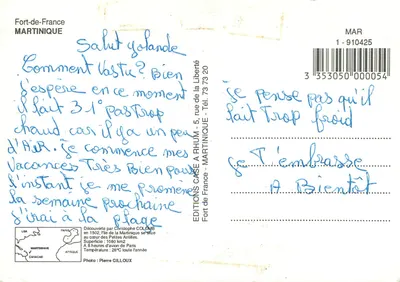 Fort-de-France
MARTINIQUE
Salut yolande
Comment Vastu? Bien
j'espère en ce moment
il fait 31° pas Trop
chaud car il y a un peu
d'AiR. je commence mes
Vacances Très Bien pour
l'instant je me promène
la semaine prochaine
j'irai à la plage
Découverte par Christophe COLOMB
en 1502, l'île de la Martinique se situe
au cœur des Petites Antilles.
Superficie : 1100 km2
A 8 heures d'avion de Paris
Température : 26°C toute l'année
Photo : Pierre GILLOUX
EDITIONS CASE A RHUM - 5, rue de la Liberté
Fort de France - MARTINIQUE - Tél. 73 73 20
MAR
1 - 910425
3 353050 000054
je pense pas qu'il
fait Trop froid
je T'embrasse
A Bientôt